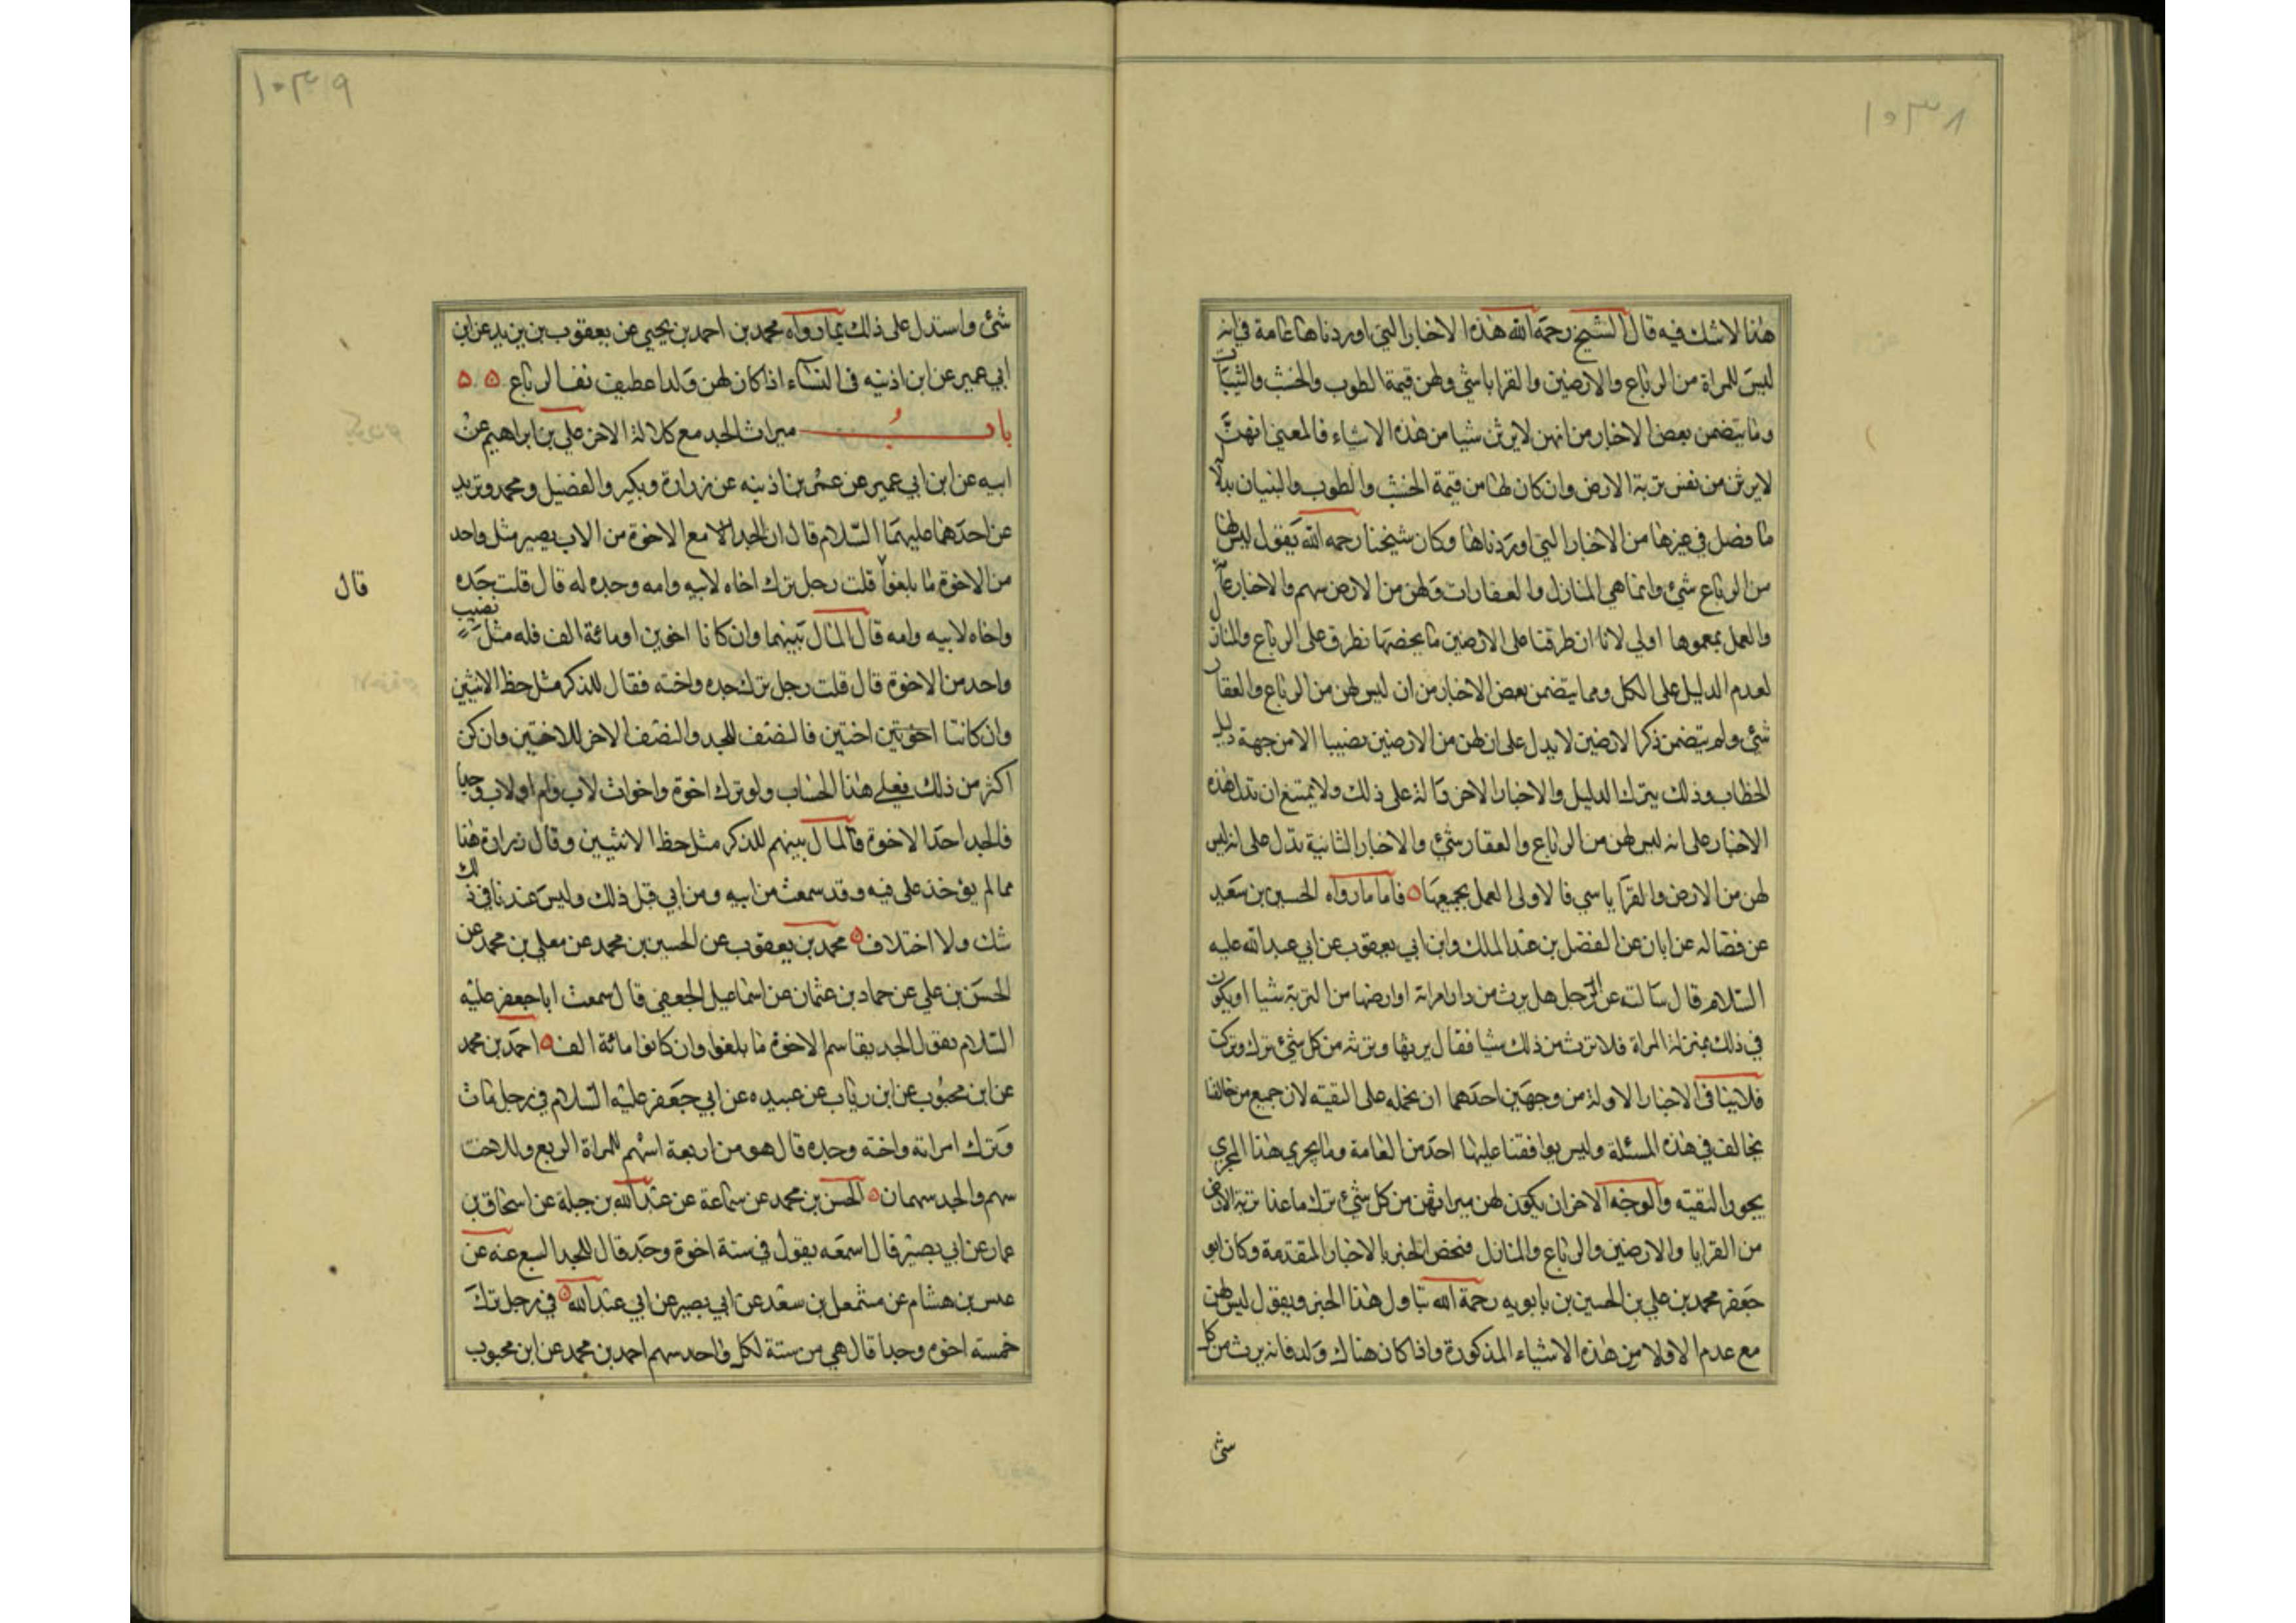 ١٠٣٨
هذا لا شك فيه قال الشيخ رحمة الله هذه الاخبار التي اوردناها عامة في انه
ليس للمراة من الرباع والارضين والقرايا شئ ولهن قيمة الطوب والخشب والثياب
وما يتضمن بعض الاخبار من انهن لا يرثن شيا من هذه الاشياء فالمعني انهن
لا يرثن من نفس تربة الارض وان كان لها من قيمة الخشب والطوب والبنيان بدلالة
ما فصل في غيرها من الاخبار التي اوردناها وكان شيخنا رحمه الله يقول ليس لهن
من الرباع شئ وانما هي المنازل والعقارات ولهن من الارض سهم والاخبار عامة
والعمل بعموها اولي لانا ان طرقنا على الارضين ما يخصها نطرق على الرباع والمنازل
لعدم الدليل على الكل ومما يتضمن بعض الاخبار من ان ليس لهن من الرباع والعقار
شئ ولم يتضمن ذكر الارضين لا يدل على ان لهن من الارضين نصيبا الا من جهة دليل
الخطاب وذلك يترك الدليل والاخبار الاخر دالة على ذلك ولا يمتنع ان تدل هذه
الاخبار على انه ليس لهن من الرباع والعقار شئ والاخبار الثانية تدل على انه ليس
لهن من الارض والقرايا سي فالاولى العمل بجميعها ه فاما ما رواه الحسين بن سعيد
عن فضاله عن ابان عن الفضل بن عبد الملك وابن ابي يعقوب عن ابي عبد الله عليه
السلام قال سالته عن الرجل هل يرث من دار امراته او ارضها من التربة شيا او يكون
في ذلك بمنزلة المراة فلا ترث من ذلك شيا فقال يرثها وترثه من كل شئ ترك وتركت
فلا ينا في الاخبار الاولة من وجهين احدهما ان نحمله على التقيته لان جميع من خالفا
يخالف في هذه المسئلة وليس يوافقنا عليها احد من العامة وما يجري هذا المجري
يجوز التقيته والوجه الاخر ان يكون لهن ميراثهن من كل شئ ترك ما عدا تربة الارض
من القرايا والارضين والرباع والمنازل فنخص الخبر بالاخبار المقدمة وكان ابو
جعفر محمد بن علي بن الحسين بن بابويه رحمة الله تاول هذا الخبر ويقول ليس لهن
مع عدم الاولاد من هذه الاشياء المذكورة واذا كان هناك ولد فانه يرث من كل
شئ
١٠٣٩
شئ واستدل على ذلك بما رواه محمد بن احمد بن يحيي عن يعقوب بن يزيد عن ابن
ابي عمير عن ابن اذينه في النساء اذا كان لهن ولد اعطين نفا لرباع ه ه
باب ميراث الجد مع كلالة الاخ علي بن ابراهيم عن
ابيه عن ابن ابي عمير عن عمر بن اذينه عن زرارة وبكير والفضيل ومحمد وبريد
عن احدهما عليهما السلام قال ان الجد الا مع الاخوة من الاب يصير مثل واحد
من الاخوة ما بلغوا قلت رجل ترك اخاه لابيه وامه وجده له قال قلت جده
قال
واخاه لابيه وامه قال المال بينهما وان كانا اخوين او مائة الف فله مثل نصيب
واحد من الاخوة قال قلت رجل ترك جده واخته فقال للذكر مثل حظ الانثيين
وان كانتا اختين فالنصف للجد والنصف الاخر للاختين وان كن
اكثر من ذلك فعلي هذا الحساب ولو ترك اخوة واخوات لاب وام او لاب وجدا
فالجد احد الاخوة فالمال بينهم للذكر مثل حظ الانثيين وقال زرارة هذا
مما لم يؤخذ على فيه وقد سمعت من ابيه ومن ابي قبل ذلك وليس عندنا في ذلك
شك ولا اختلاف ه محمد بن يعقوب عن الحسين بن محمد عن معلي بن محمد عن
الحسن بن علي عن حماد بن عثمان عن اسماعيل الجعفي قال سمعت ابا جعفر عليه
السلام يقول الجد يقاسم الاخوة ما بلغوا وان كانوا مائة الف ه احمد بن محمد
عن ابن محبوب عن ابن رياب عن عبيده عن ابي جعفر عليه السلام في رجل مات
وترك امراته واخته وجده قال هو من اربعة اسهم للمراة الربع وللاخت
سهم والجد سهمان ه الحسن بن محمد عن سماعة عن عبد الله بن جبلة عن اسحاق بن
عمار عن ابي بصير قال سمعه يقول في ستة اخوة وجد قال للجد السبع عنه عن
عبس بن هشام عن مشمعل بن سعد عن ابي بصير عن ابي عبد الله ه في رجل ترك
خمسة اخوه وجدا قال هي من ستة لكل واحد سهم احمد بن محمد عن ابن محبوب